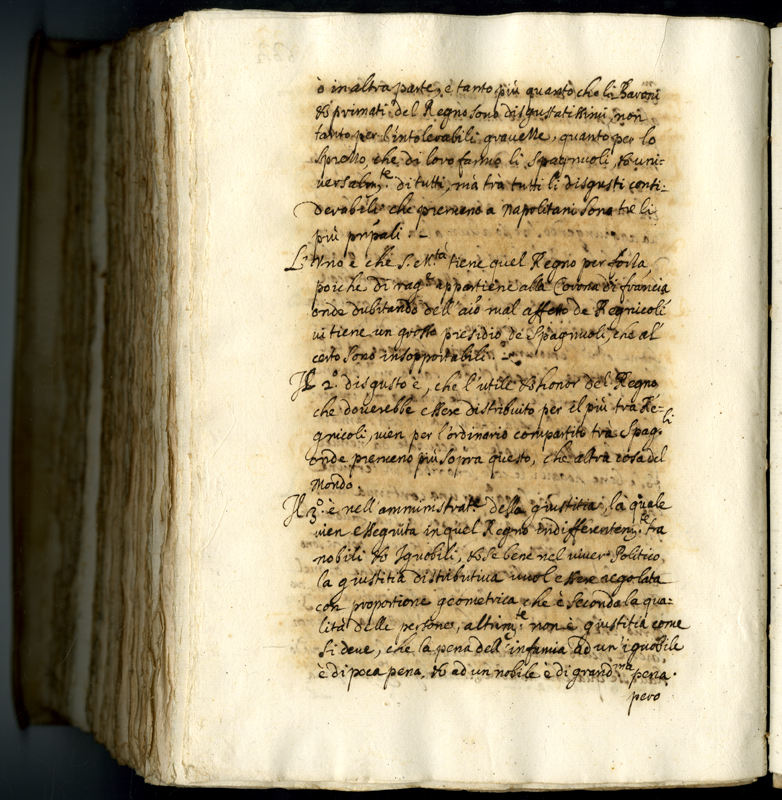 ò in altra parte, e tanto più quanto che li Baroni
& primati del Regno sono disgustatissimi, non
tanto per l'intolerabili gravezze, quanto per lo
sprezzo, che di loro fanno li Spagnuoli, & uni-
versalm.te di tutti, mà trà tutti li disgusti consi-
derabili che premeno a Napolitani sono tre li
più pñpali
L'Uno è che S. M.tà tiene quel Regno per forza
poiche di rag.e appartiene alla Corona di francia
onde dubitando dell' aīo mal affetto de Regnicoli
vi tiene un grosso presidio de Spagnuoli, che al
certo sono insopportabili.
Il 2.º disgusto è, che l'utile & honor del Regno
che doverebbe essere distribuito per il più trà Re-
gnicoli, vien per l'ordinario compartito trà Spag.li
onde premeno più sopra questo, che altra cosa del
Mondo.
Il 3.º è nell' amministrat.e della giustitia, la quale
vien esseguita in quel Regno indifferentem.te tra
nobili & Ignobili, & se bene nel viver Politico
la giustitia distributiva vuol essere
con proportione geometrica che è seconda la qua-
lità delle persone, altrim.te non è giustitia come
si deve, che la pena dell' infamia ad un' ignobile
è di poca pena, & ad un nobile è di grand.ma pena.
pero